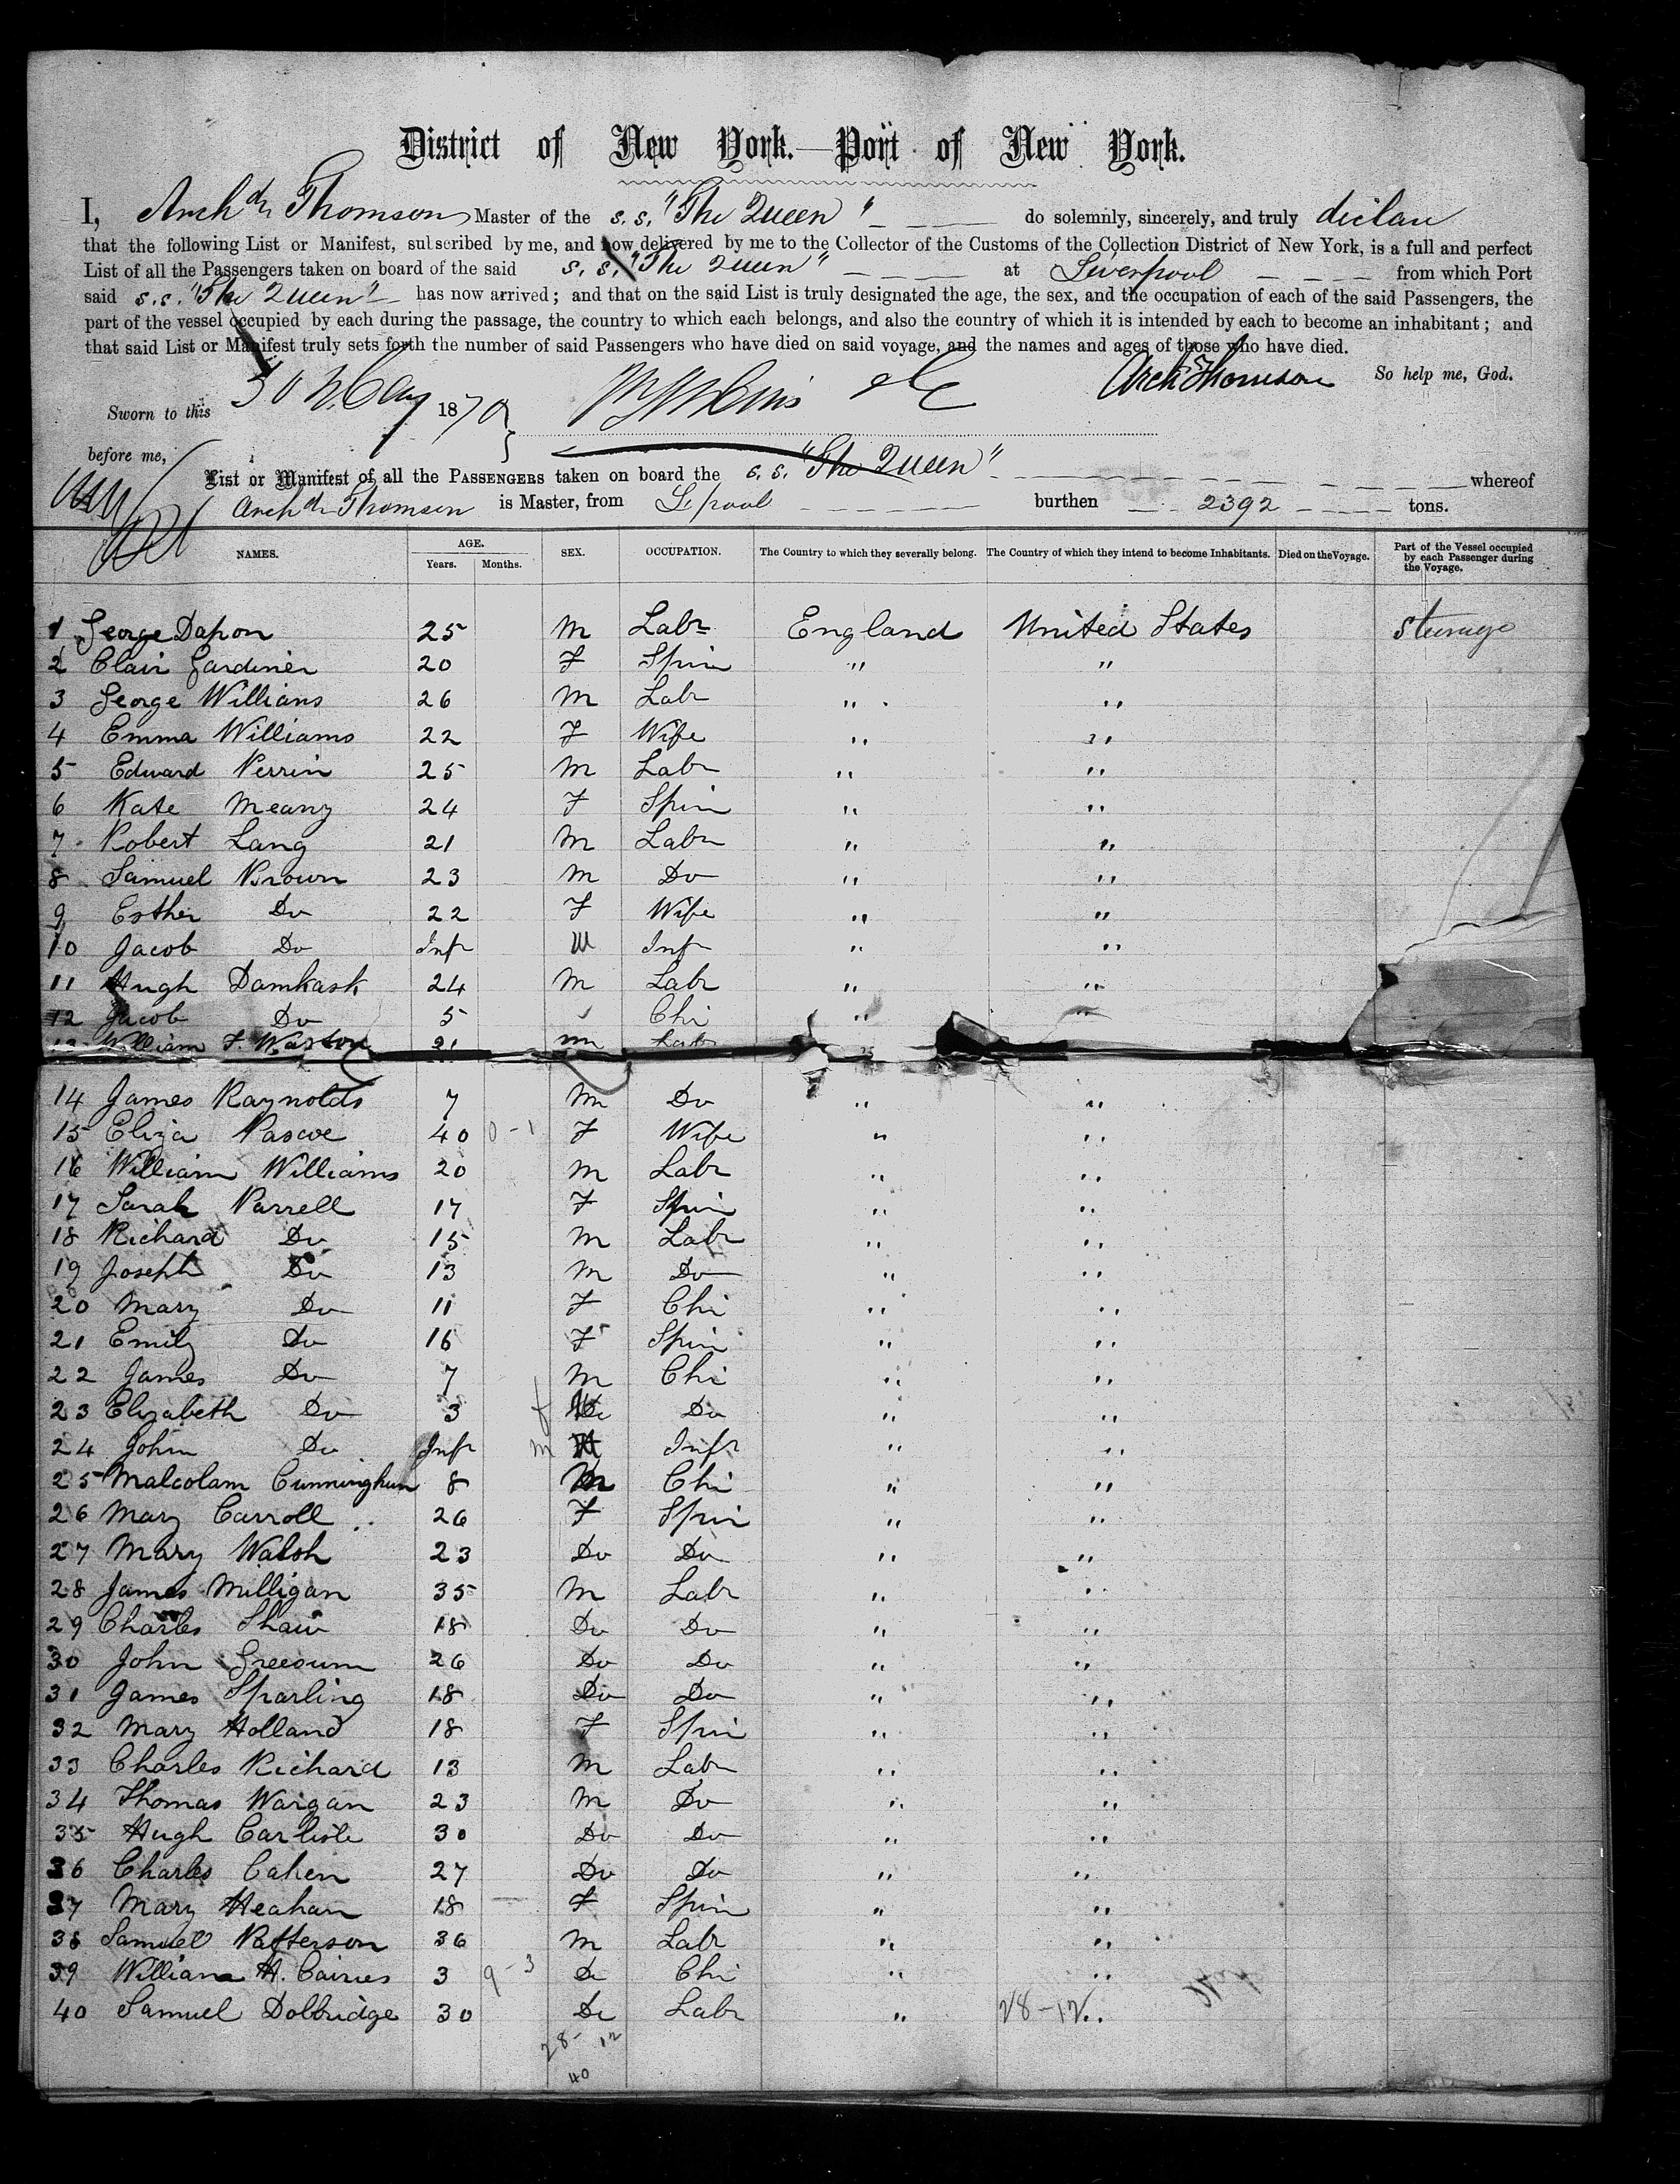 District of New York.—Port of New York.
I, Archd Thomson Master of the s.s. "The Queen" do solemnly, sincerely, and truly declare
that the following List or Manifest, subscribed by me, and now delivered by me to the Collector of the Customs of the Collection District of New York, is a full and perfect
List of all the Passengers taken on board of the said s.s. "The Queen" at Liverpool from which Port
said s.s. "The Queen" has now arrived; and that on the said List is truly designated the age, the sex, and the occupation of each of the said Passengers, the
part of the vessel occupied by each during the passage, the country to which each belongs, and also the country of which it is intended by each to become an inhabitant; and
that said List or Manifest truly sets forth the number of said Passengers who have died on said voyage, and the names and ages of those who have died.
Arch Thomson So help me, God.
Sworn to this 30 May 1870
before me,
List or Manifest of all the PASSENGERS taken on board the s.s. "The Queen" whereof
Archd Thomson is Master, from L'pool burthen 2392 tons.
NAMES. AGE. Years. Months. SEX. OCCUPATION. The Country to which they severally belong. The Country of which they intend to become Inhabitants. Died on the Voyage. Part of the Vessel occupied by each Passenger during the Voyage.
1 George Dapon 25 M Labr England United States Steerage
2 Clair Gardiner 20 F Spin " "
3 George Williams 26 M Labr " "
4 Emma Williams 22 F Wife " "
5 Edward Perrin 25 M Labr " "
6 Kate Meany 24 F Spin " "
7 Robert Lang 21 M Labr " "
8 Samuel Brown 23 M Do " "
9 Esther Do 22 F Wife " "
10 Jacob Do Inf M Inf " "
11 Hugh Damkask 24 M Labr " "
12 Jacob Do 5 Chi " "
13 William F. Waston 21 M Labr
14 James Raynolds 7 M Do " "
15 Eliza Pascoe 40 0-1 F Wife " "
16 William Williams 20 M Labr " "
17 Sarah Parrell 17 F Spin " "
18 Richard Do 15 M Labr " "
19 Joseph Do 13 M Do " "
20 Mary Do 11 F Chi " "
21 Emily Do 16 F Spin " "
22 James Do 7 M Chi " "
23 Elizabeth Do 3 f Do " "
24 John Do Inf m Inft " "
25 Malcolam Cunningham 8 M Chi " "
26 Mary Carroll 26 F Spin " "
27 Mary Walsh 23 Do Do " "
28 James Milligan 35 M Labr " "
29 Charles Shaw 18 Do Do " "
30 John Greesum 26 Do Do " "
31 James Sparling 18 Do Do " "
32 Mary Holland 18 F Spin " "
33 Charles Richard 13 M Labr " "
34 Thomas Wargan 23 M Do " "
35 Hugh Carlisle 30 Do Do " "
36 Charles Cahen 27 Do Do " "
37 Mary Heahan 18 F Spin " "
38 Samuel Patterson 36 M Labr " "
39 William H. Cairies 3 9-3 Do Chi " "
40 Samuel Dolbridge 30 Do Labr " 28-12 "
28-12
40